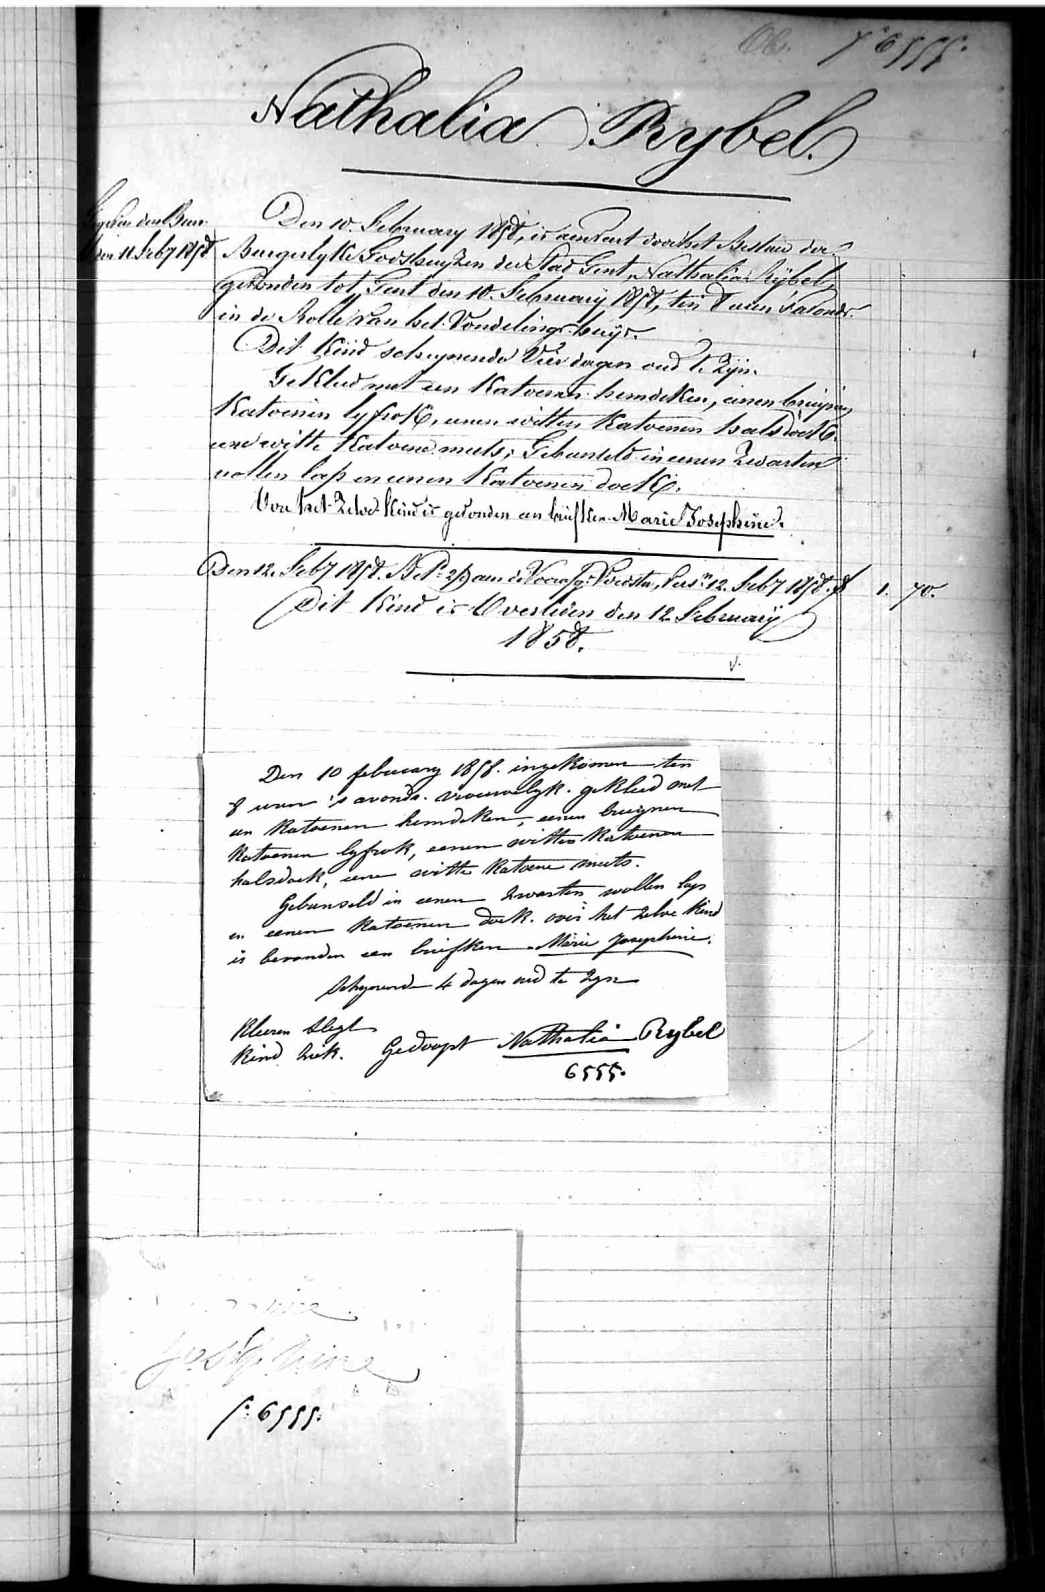 Ob. fº 6555.
Nathalia Rybel.
den Bur
11 Feb7 1858
Den 10. February 1858, is aenveird door het Bestuer der
Burgerlyke Godshuyzen der Stad Gent, Nathalia Rybel,
gevonden tot Gent den 10. February 1858, ten 8 uren 's avonds.
in de Rolle van het Vondelinghuys.
Dit Kind schynende Vier dagen oud te Zyn.
Gekleed met een Katoenen hemdeken, eenen bruynen
Katoenen lyfrok, eenen witten Katoenen halsdoek,
eene witte Katoene muts; Gebunseld in eenen Zwarten
wollen lap en eenen Katoenen doek.
Voor het Zelve Kind is gevonden een briefken Marie Josephine.
Den 12. Feb7 1858. aen de 12. Feb7 1858. f 1. 70.
Dit Kind is Overleden den 12 February
1858.
v.
Den 10 february 1858. ingekomen ten
8 uren 's avonds. vrouwelyk. gekleed met
een Katoenen hemdeken, eenen bruynen
Katoenen lyfrok, eenen witten Katoenen
halsdoek, eene witte Katoene muts.
Gebunseld in eenen Zwarten wollen lap
en eenen Katoenen doek. voor het zelve Kind
is bevonden een briefken Marie Josephine.
Schynend 4 dagen oud te Zyn
Kleeren Slegt
Kind Ziek. Gedoopt Nathalia Rybel
6555.
Josephine
fº 6555.